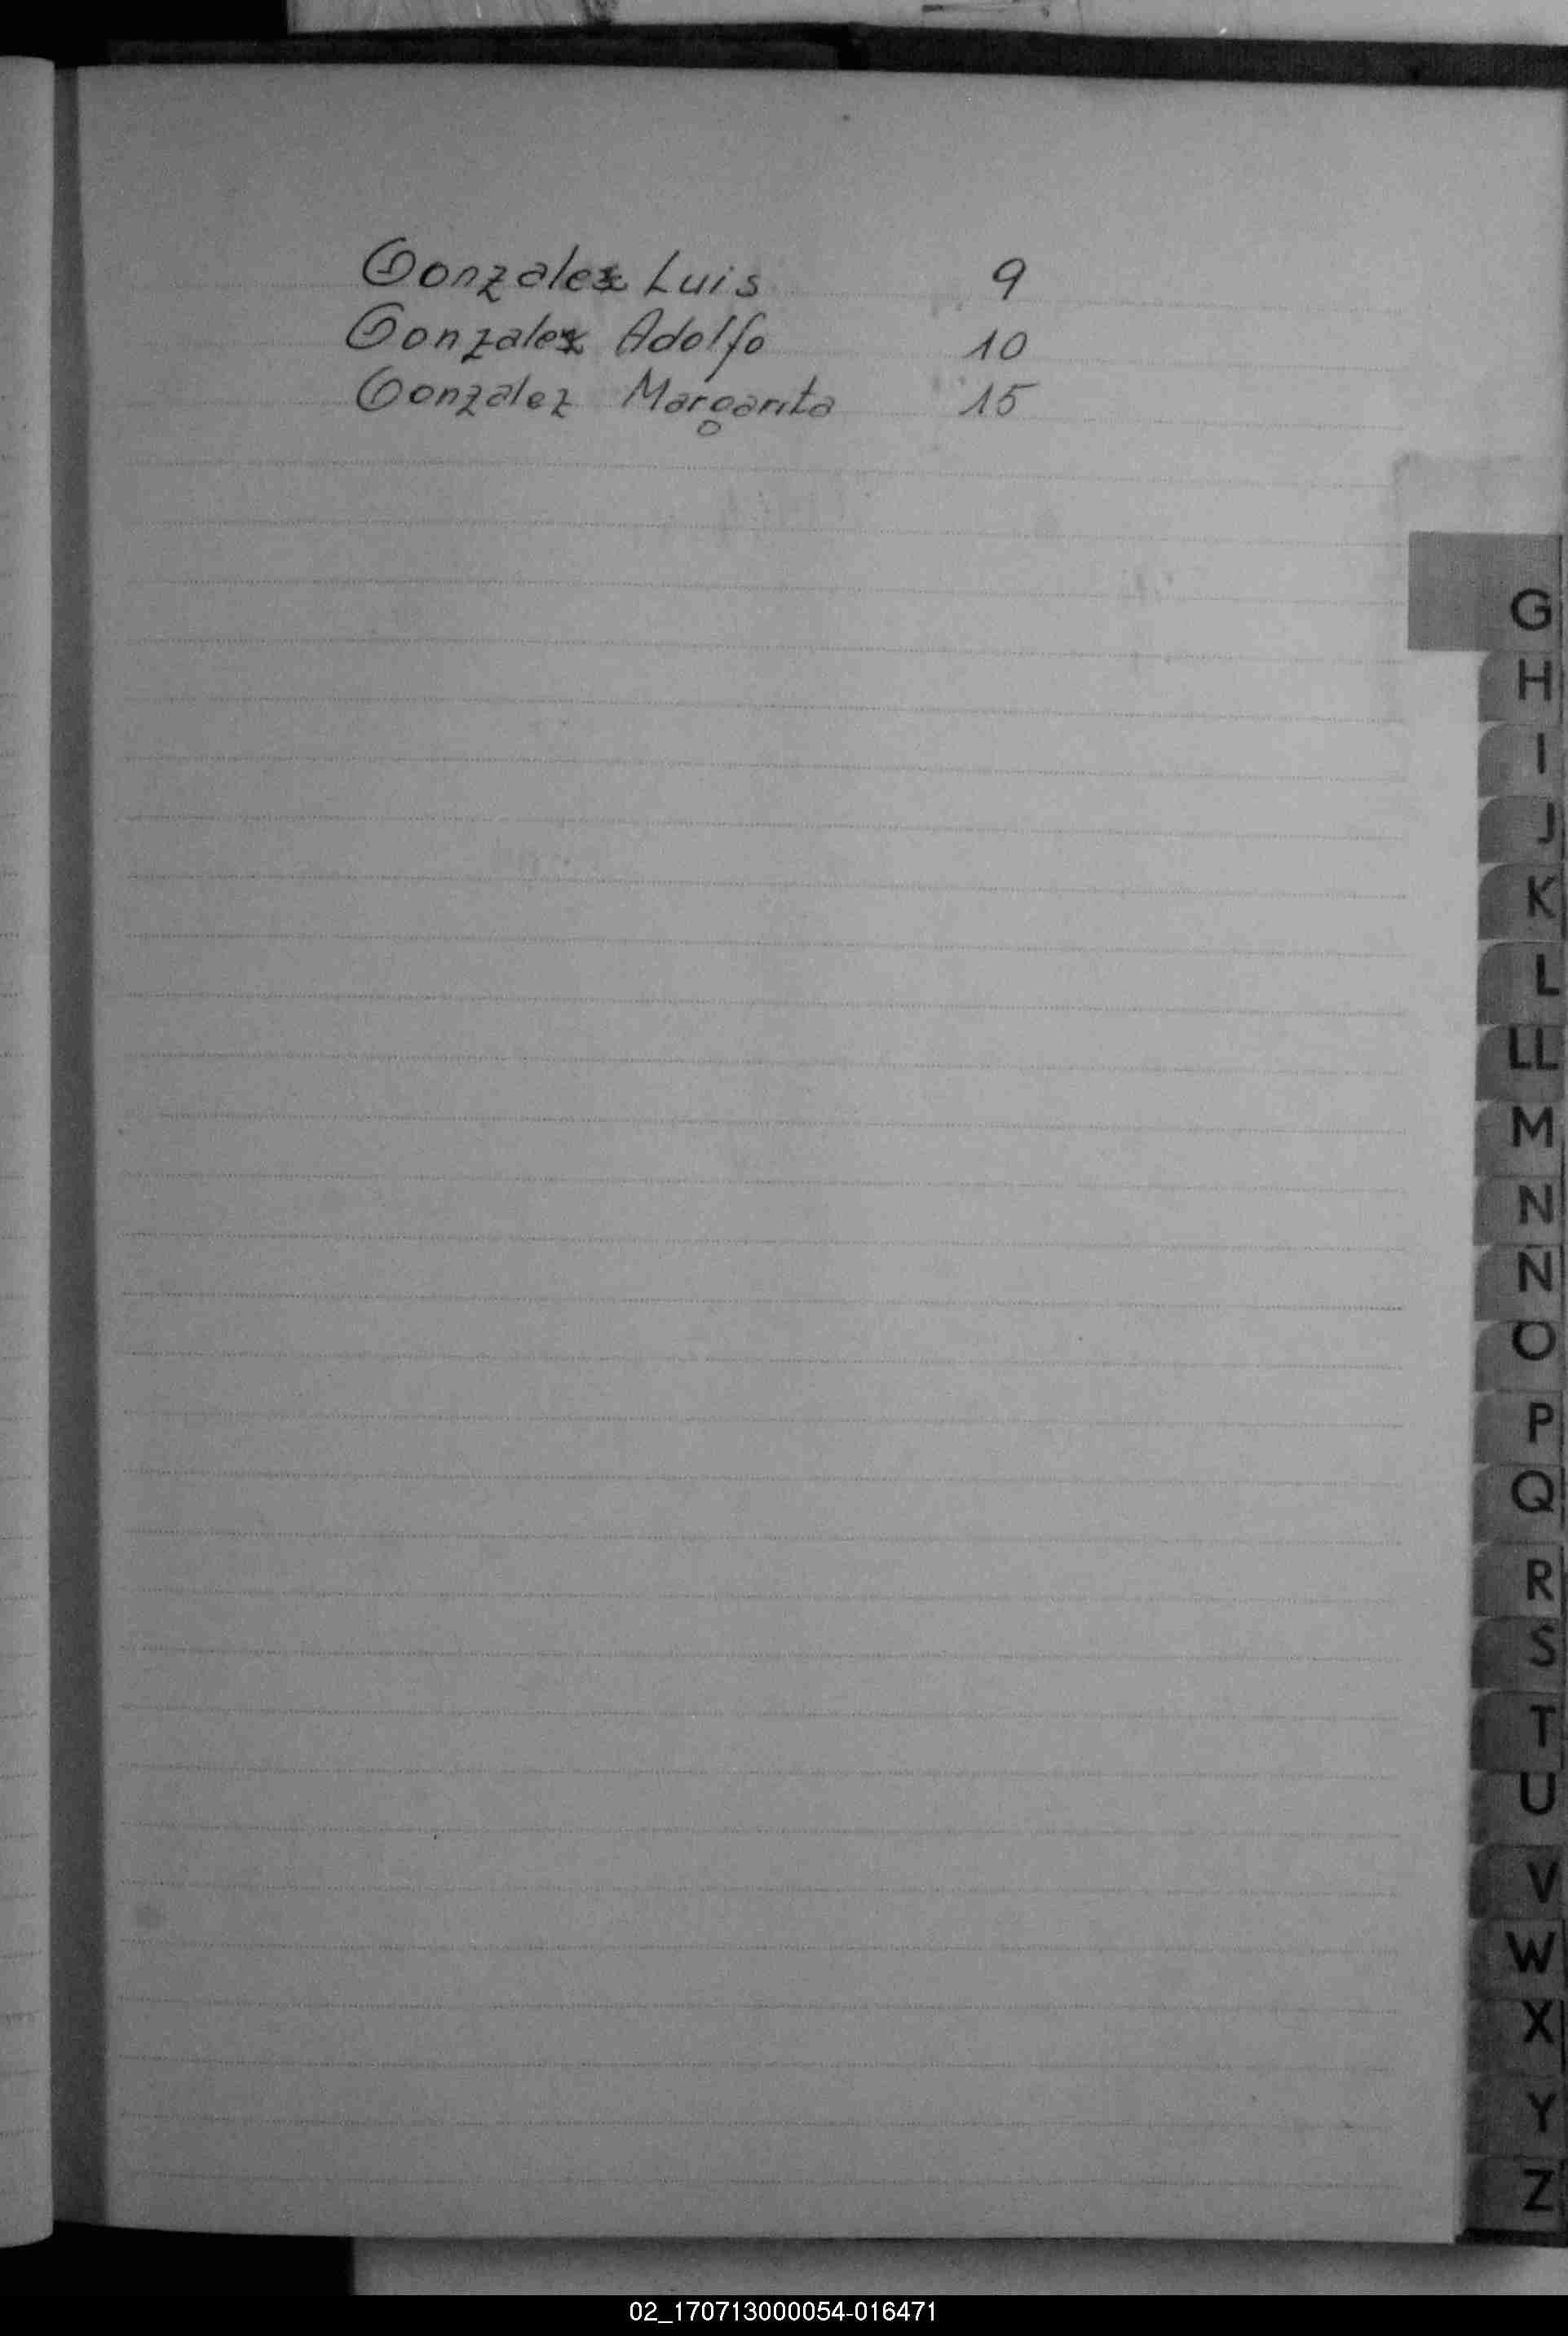 Gonzalez Luis 9
Gonzalez Adolfo 10
Gonzalez Margarita 15
G
H
I
J
K
L
LL
M
N
N
O
P
Q
R
S
T
U
V
W
X
Y
Z
02_170713000054-016471